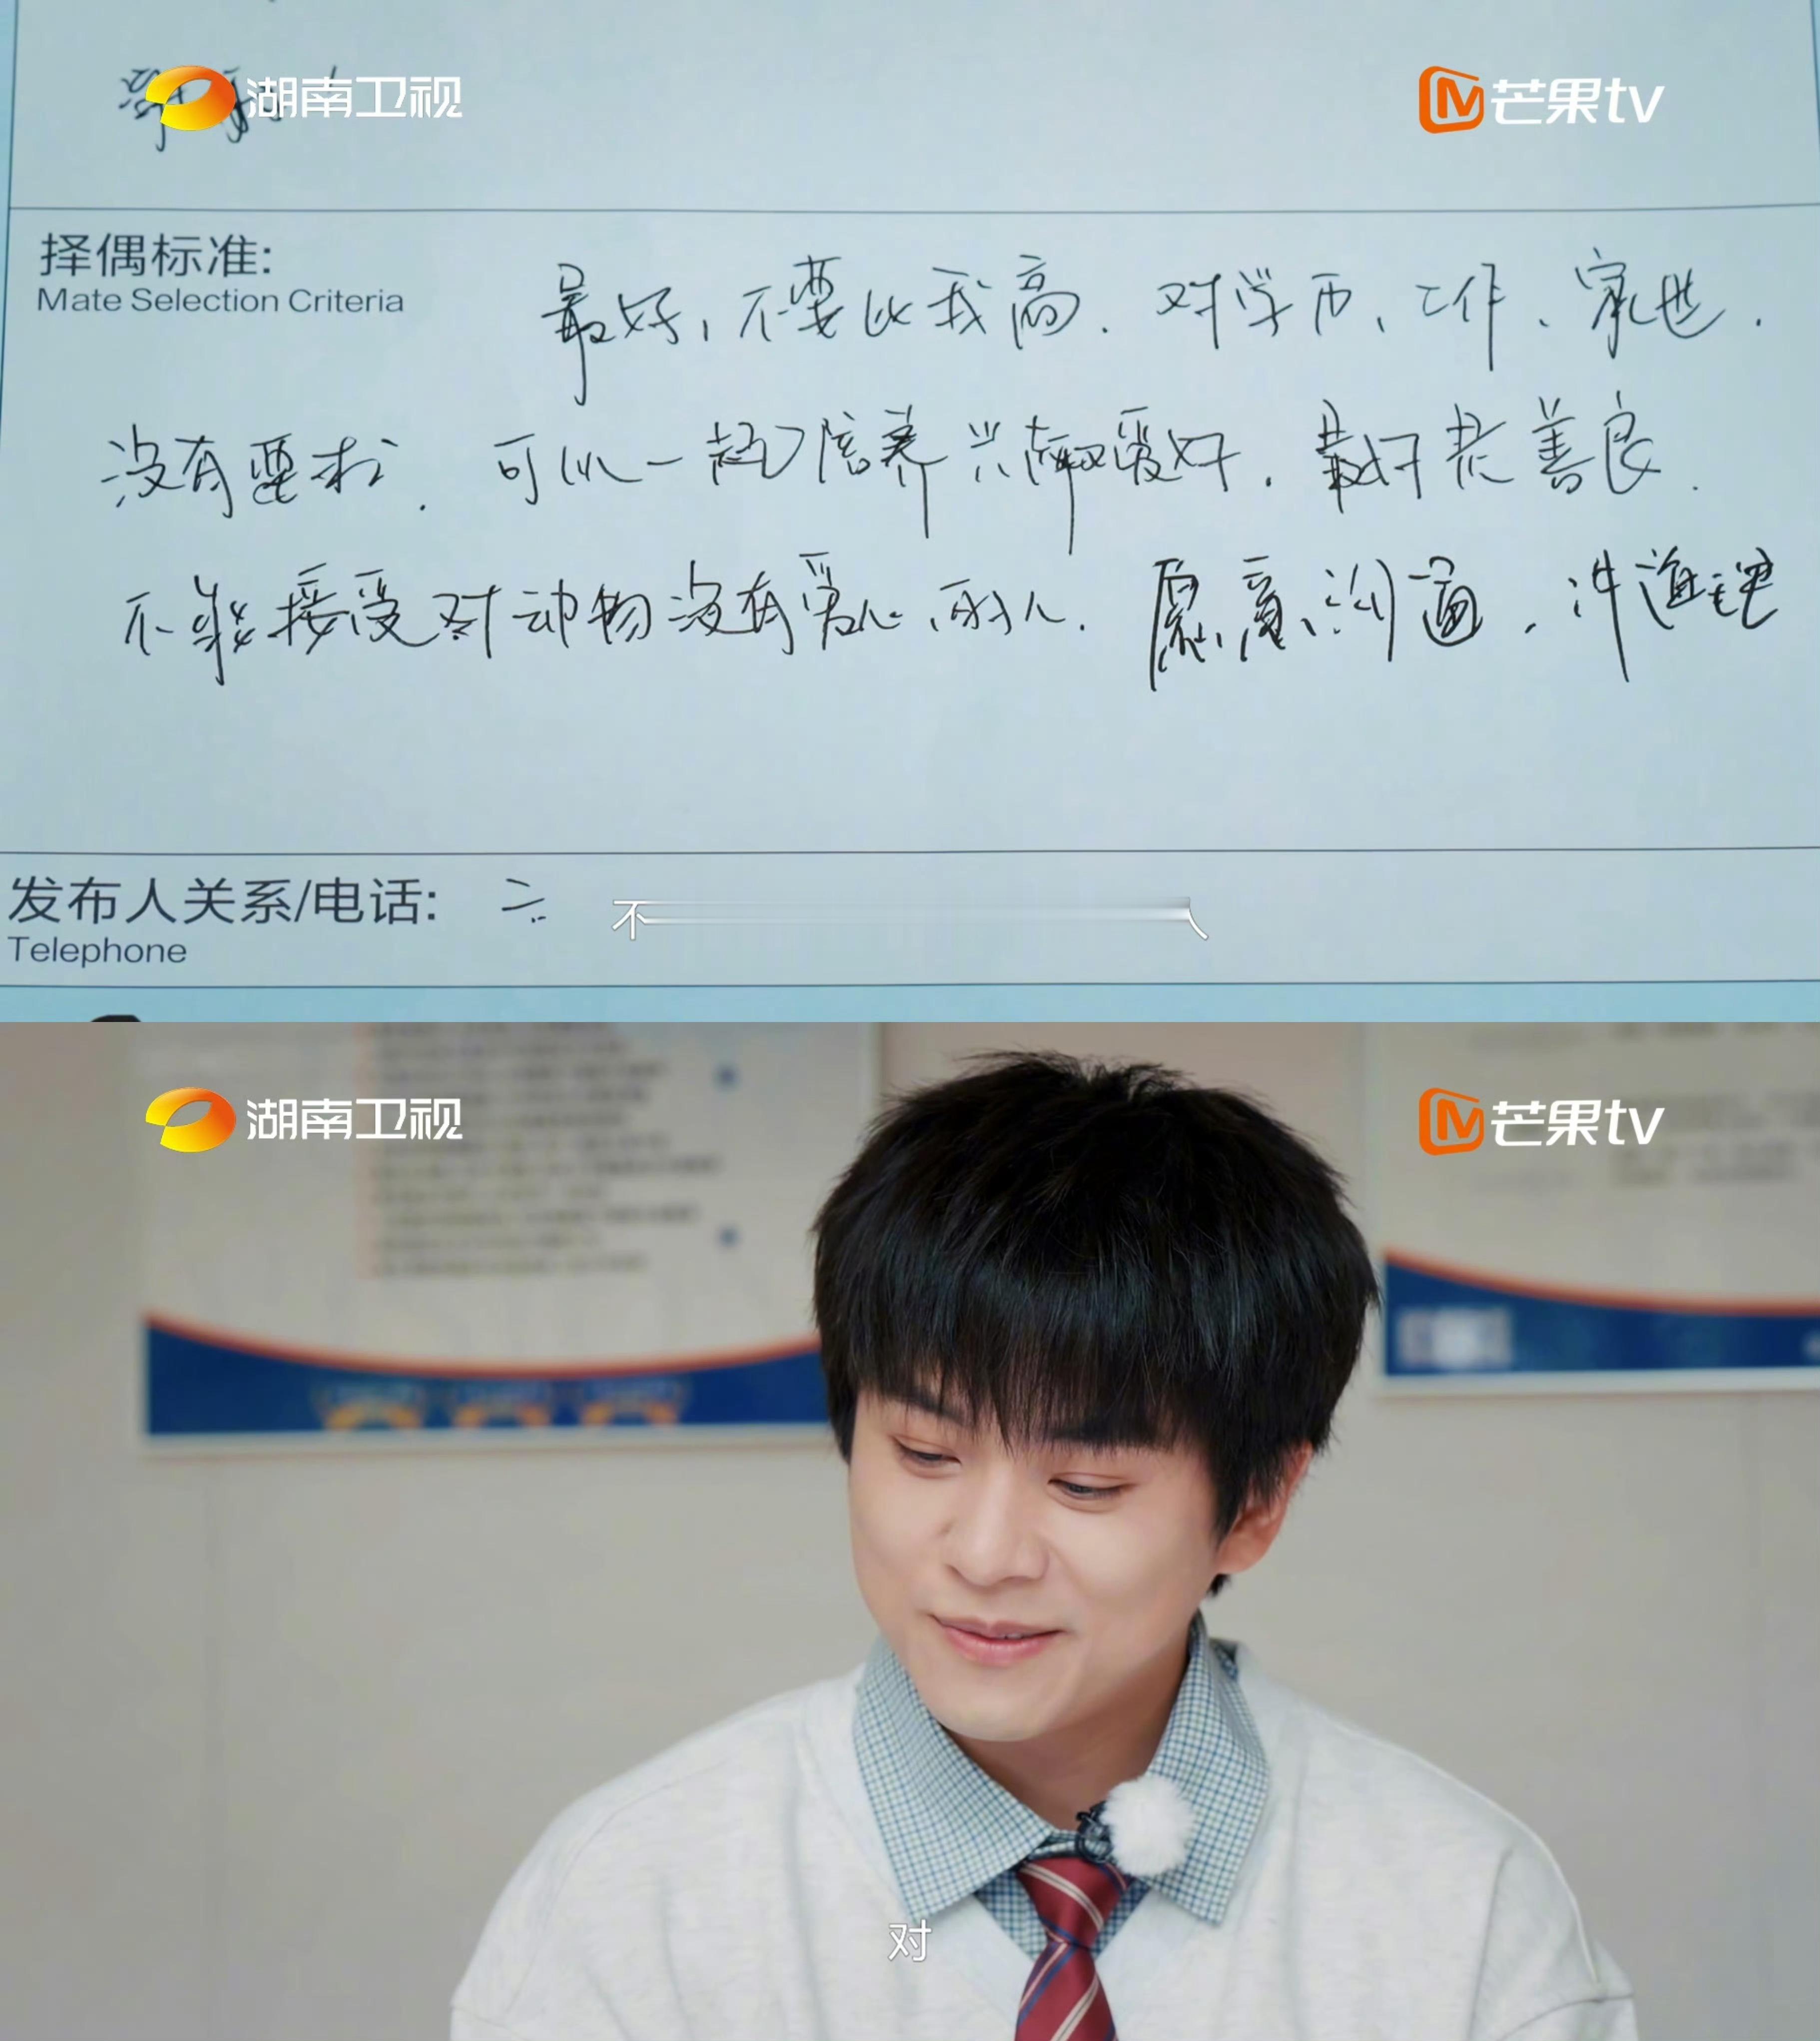 湖南卫视
芒果tv
择偶标准:
Mate Selection Criteria
最好,不要比我高.对学历、工作、家世.
没有要求.可以一起培养兴趣爱好.最好是善良.
不能接受对动物没有爱心的人.愿意沟通,讲道理
发布人关系/电话:
Telephone
不 人
湖南卫视
芒果tv
对